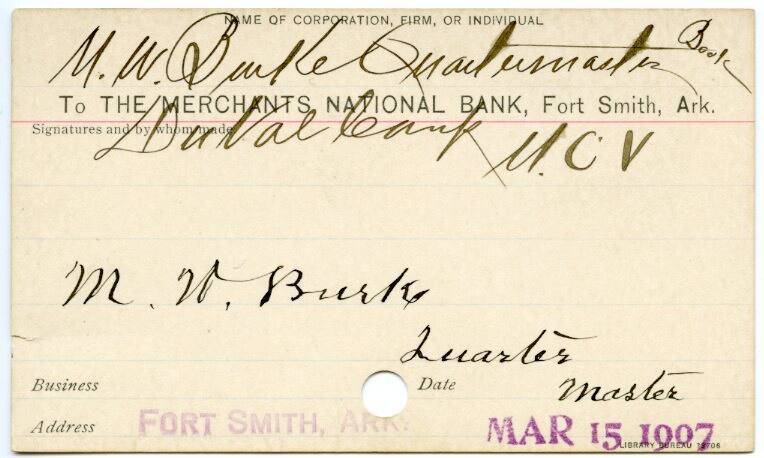 NAME OF CORPORATION, FIRM, OR INDIVIDUAL
M. W. Burke Quartermaster Book
To THE MERCHANTS NATIONAL BANK, Fort Smith, Ark.
Signatures and by whom made
DuVal Camp U. C V
M. W. Burke
Quarter
Business Date Master
Address FORT SMITH, ARK. MAR 15 1907
LIBRARY BUREAU